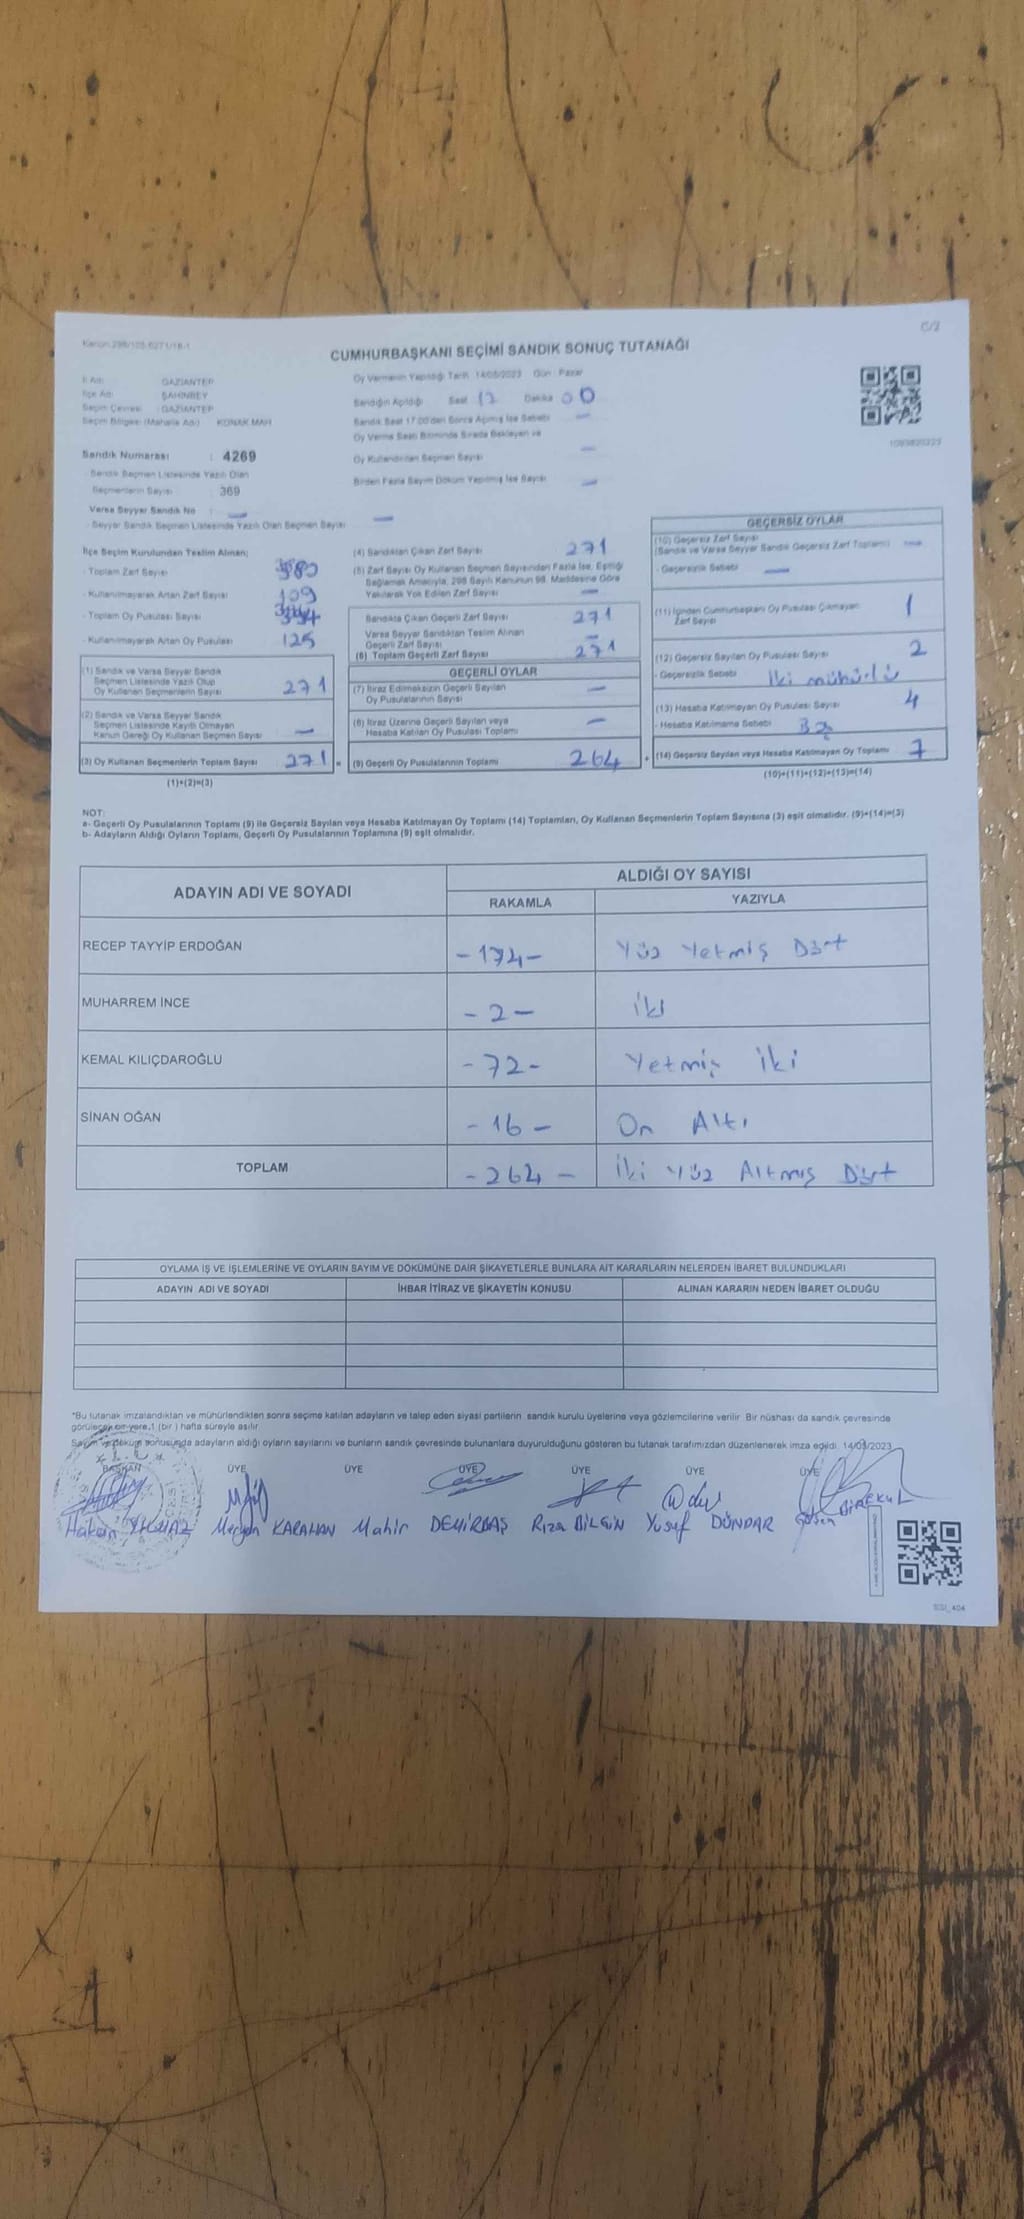 C/2
CUMHURBAŞKANI SEÇİMİ SANDIK SONUÇ TUTANAĞI
İli Adı : GAZİANTEP
İlçe Adı : ŞAHİNBEY
Seçim Çevresi : GAZİANTEP
Seçim Bölgesi (Mahalle Adı) KONAK MAH
Sandık Numarası : 4269
Sandık Seçmen Listesinde Yazılı Olan
Seçmenlerin Sayısı : 369
Varsa Seyyar Sandık No : —
- Seyyar Sandık Seçmen Listesinde Yazılı Olan Seçmen Sayısı —
Oy Vermenin Yapıldığı Tarih 14/05/2023 Gün : Pazar
Sandığın Açıldığı Saat 17 Dakika 00
Sandık Saat 17.00'den Sonra Açılmış İse Sebebi —
Oy Verme Saati Bitiminde Sırada Bekleyen ve
Oy Kullandırılan Seçmen Sayısı —
Birden Fazla Sayım Döküm Yapılmış İse Sayısı —
1093820223
İlçe Seçim Kurulundan Teslim Alınan;
- Toplam Zarf Sayısı
- Kullanılmayarak Artan Zarf Sayısı 109
- Toplam Oy Pusulası Sayısı
- Kullanılmayarak Artan Oy Pusulası 125
(1) Sandık ve Varsa Seyyar Sandık
Seçmen Listesinde Yazılı Olup
Oy Kullanan Seçmenlerin Sayısı 271
(2) Sandık ve Varsa Seyyar Sandık
Seçmen Listesinde Kayıtlı Olmayan
Kanun Gereği Oy Kullanan Seçmen Sayısı —
(3) Oy Kullanan Seçmenlerin Toplam Sayısı 271 =
(1)+(2)=(3)
(4) Sandıktan Çıkan Zarf Sayısı 271
(5) Zarf Sayısı Oy Kullanan Seçmen Sayısından Fazla İse, Eşitliği
Sağlamak Amacıyla, 298 Sayılı Kanunun 98. Maddesine Göre
Yakılarak Yok Edilen Zarf Sayısı —
Sandıkta Çıkan Geçerli Zarf Sayısı 271
Varsa Seyyar Sandıktan Teslim Alınan
Geçerli Zarf Sayısı —
(6) Toplam Geçerli Zarf Sayısı 271
GEÇERLİ OYLAR
(7) İtiraz Edilmeksizin Geçerli Sayılan
Oy Pusulalarının Sayısı —
(8) İtiraz Üzerine Geçerli Sayılan veya
Hesaba Katılan Oy Pusulası Toplamı —
(9) Geçerli Oy Pusulalarının Toplamı 264 +
GEÇERSİZ OYLAR
(10) Geçersiz Zarf Sayısı
(Sandık ve Varsa Seyyar Sandık Geçersiz Zarf Toplamı) —
- Geçersizlik Sebebi —
(11) İçinden Cumhurbaşkanı Oy Pusulası Çıkmayan
Zarf Sayısı 1
(12) Geçersiz Sayılan Oy Pusulası Sayısı 2
- Geçersizlik Sebebi İki mühürlü
(13) Hesaba Katılmayan Oy Pusulası Sayısı 4
- Hesaba Katılmama Sebebi Boş
(14) Geçersiz Sayılan veya Hesaba Katılmayan Oy Toplamı 7
(10)+(11)+(12)+(13)=(14)
NOT:
a- Geçerli Oy Pusulalarının Toplamı (9) ile Geçersiz Sayılan veya Hesaba Katılmayan Oy Toplamı (14) Toplamları, Oy Kullanan Seçmenlerin Toplam Sayısına (3) eşit olmalıdır. (9)+(14)=(3)
b- Adayların Aldığı Oyların Toplamı, Geçerli Oy Pusulalarının Toplamına (9) eşit olmalıdır.
ADAYIN ADI VE SOYADI ALDIĞI OY SAYISI
RAKAMLA YAZIYLA
RECEP TAYYİP ERDOĞAN -174- Yüz Yetmiş Dört
MUHARREM İNCE -2- İki
KEMAL KILIÇDAROĞLU -72- Yetmiş İki
SİNAN OĞAN -16- On Altı
TOPLAM -264- İki Yüz Altmış Dört
OYLAMA İŞ VE İŞLEMLERİNE VE OYLARIN SAYIM VE DÖKÜMÜNE DAİR ŞİKAYETLERLE BUNLARA AİT KARARLARIN NELERDEN İBARET BULUNDUKLARI
ADAYIN ADI VE SOYADI İHBAR İTİRAZ VE ŞİKAYETİN KONUSU ALINAN KARARIN NEDEN İBARET OLDUĞU
*Bu tutanak imzalandıktan ve mühürlendikten sonra seçime katılan adayların ve talep eden siyasi partilerin sandık kurulu üyelerine veya gözlemcilerine verilir. Bir nüshası da sandık çevresinde
görülecek bir yere 1 (bir) hafta süreyle asılır.
Sayım ve döküm sonusunda adayların aldığı oyların sayılarını ve bunların sandık çevresinde bulunanlara duyurulduğunu gösteren bu tutanak tarafımızdan düzenlenerek imza edildi. 14/05/2023
BAŞKAN ÜYE ÜYE ÜYE ÜYE ÜYE ÜYE
Hakan YILMAZ Meryem KARAHAN Mahir DEMİRBAŞ Rıza BİLGİN Yusuf DÜNDAR